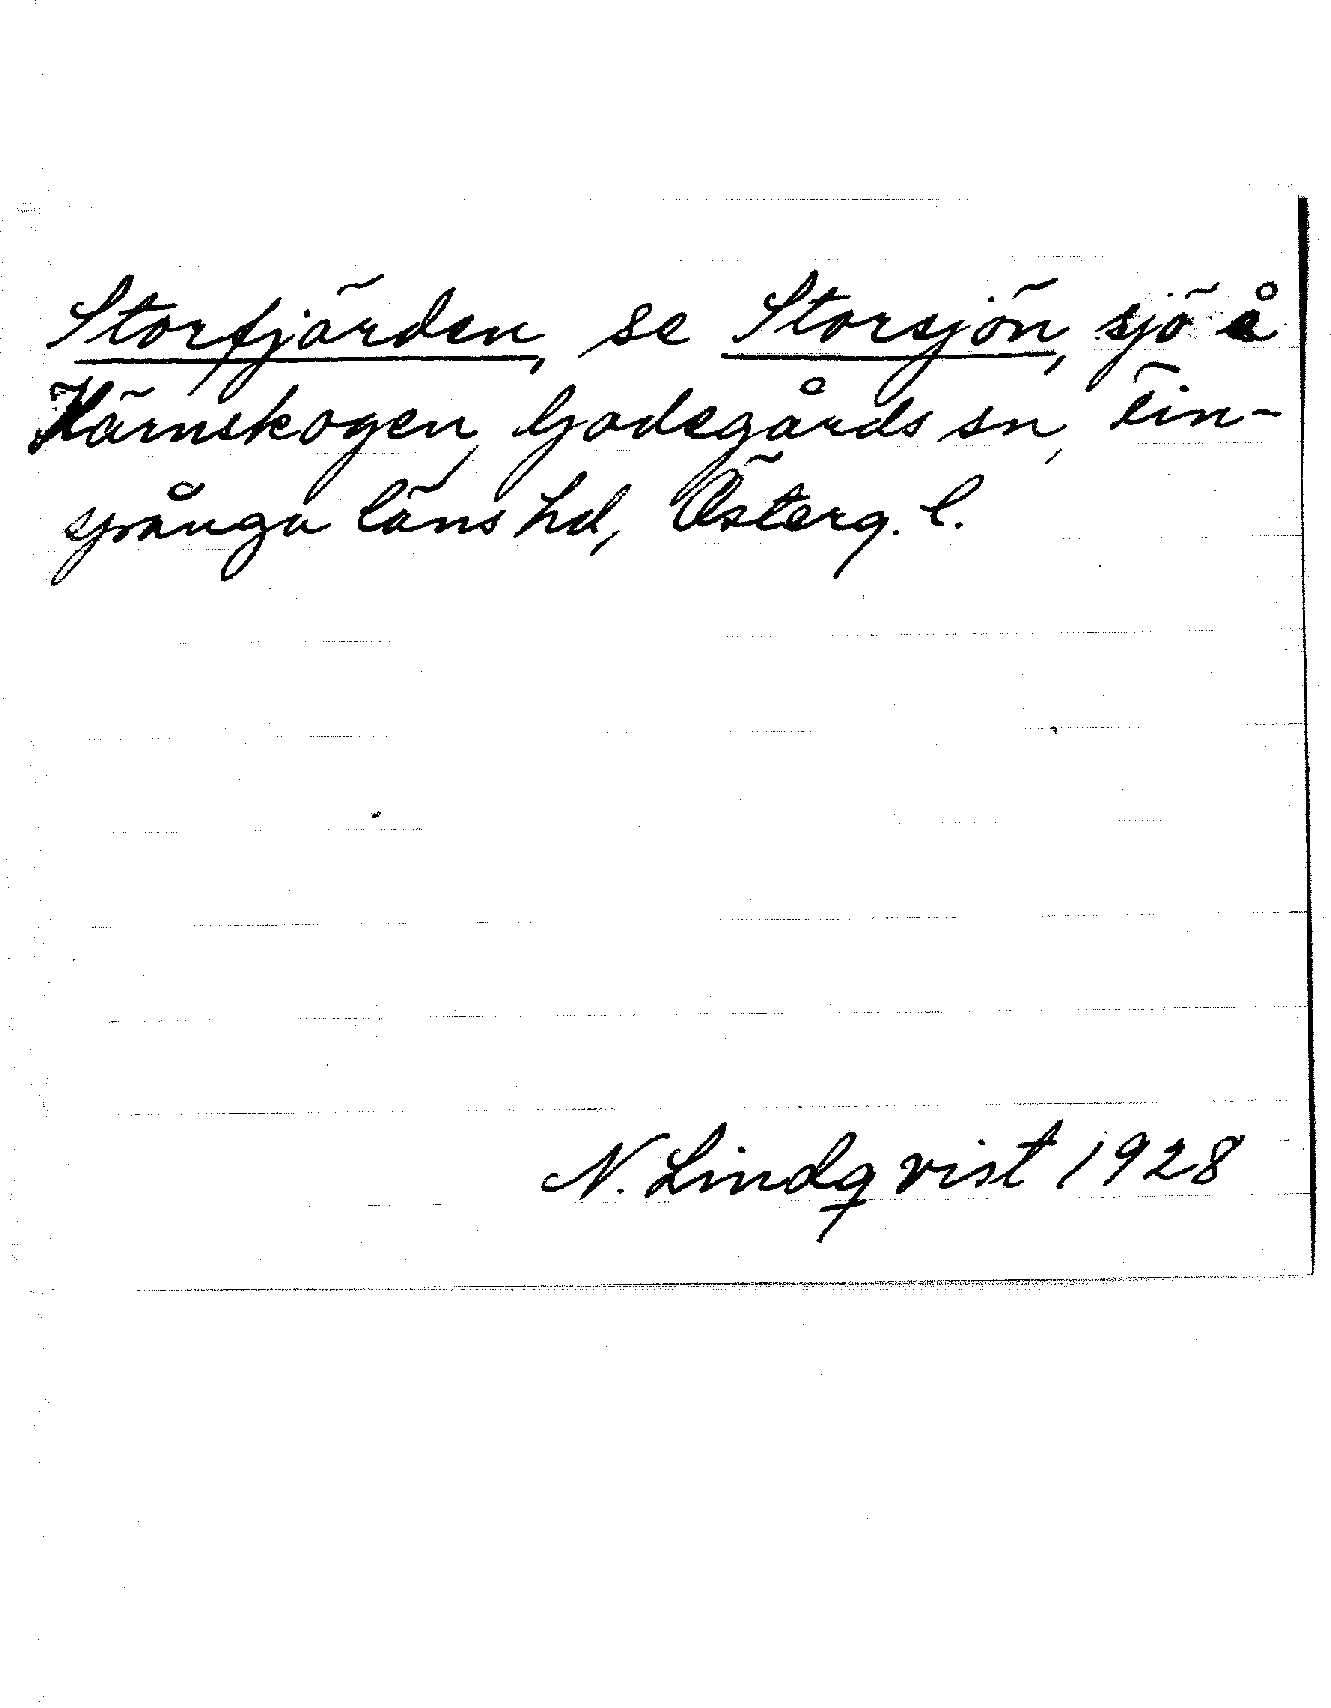 Storfjärden, se Storsjön, sjö å
Kärnskogen, Godegårds sn, Fin-
spånga läns hd, Österg. l.
N. Lindqvist 1928